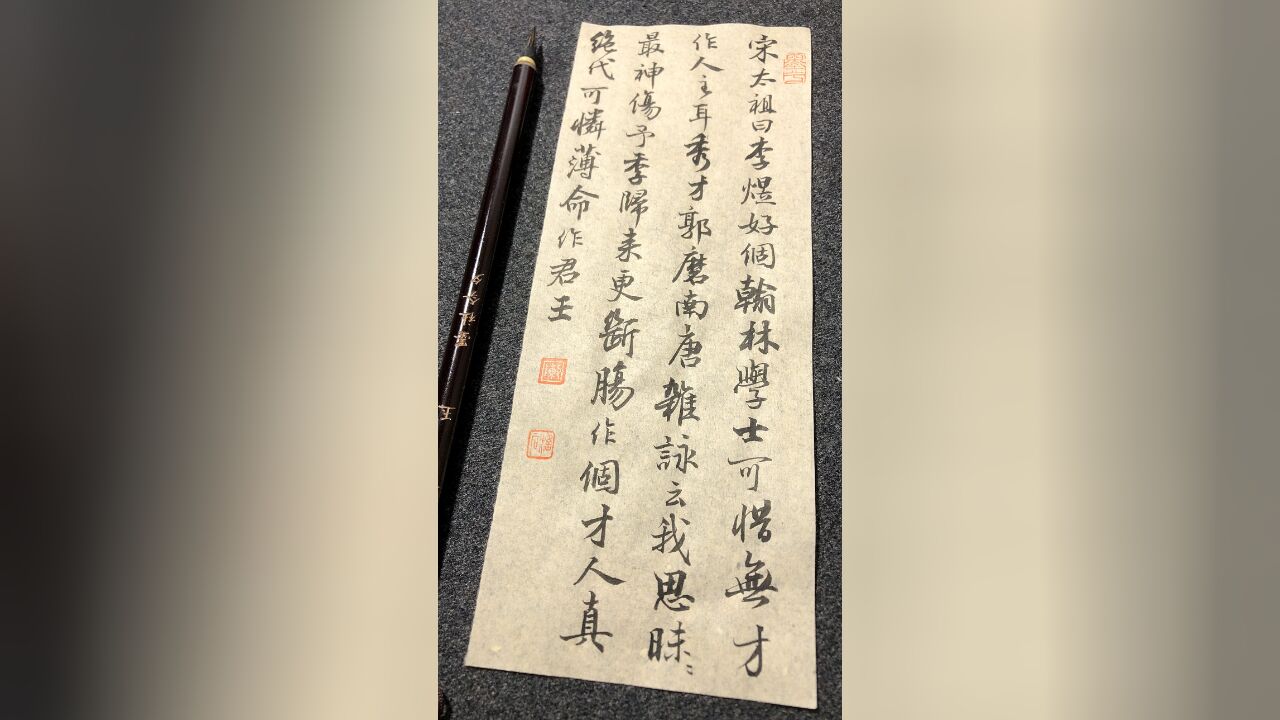 宋太祖曰李煜好個翰林學士可惜無才
作人主耳秀才郭麐南唐雜詠云我思昧〻
最神傷予季歸来更斷腸作個才人真
絕代可憐薄命作君王